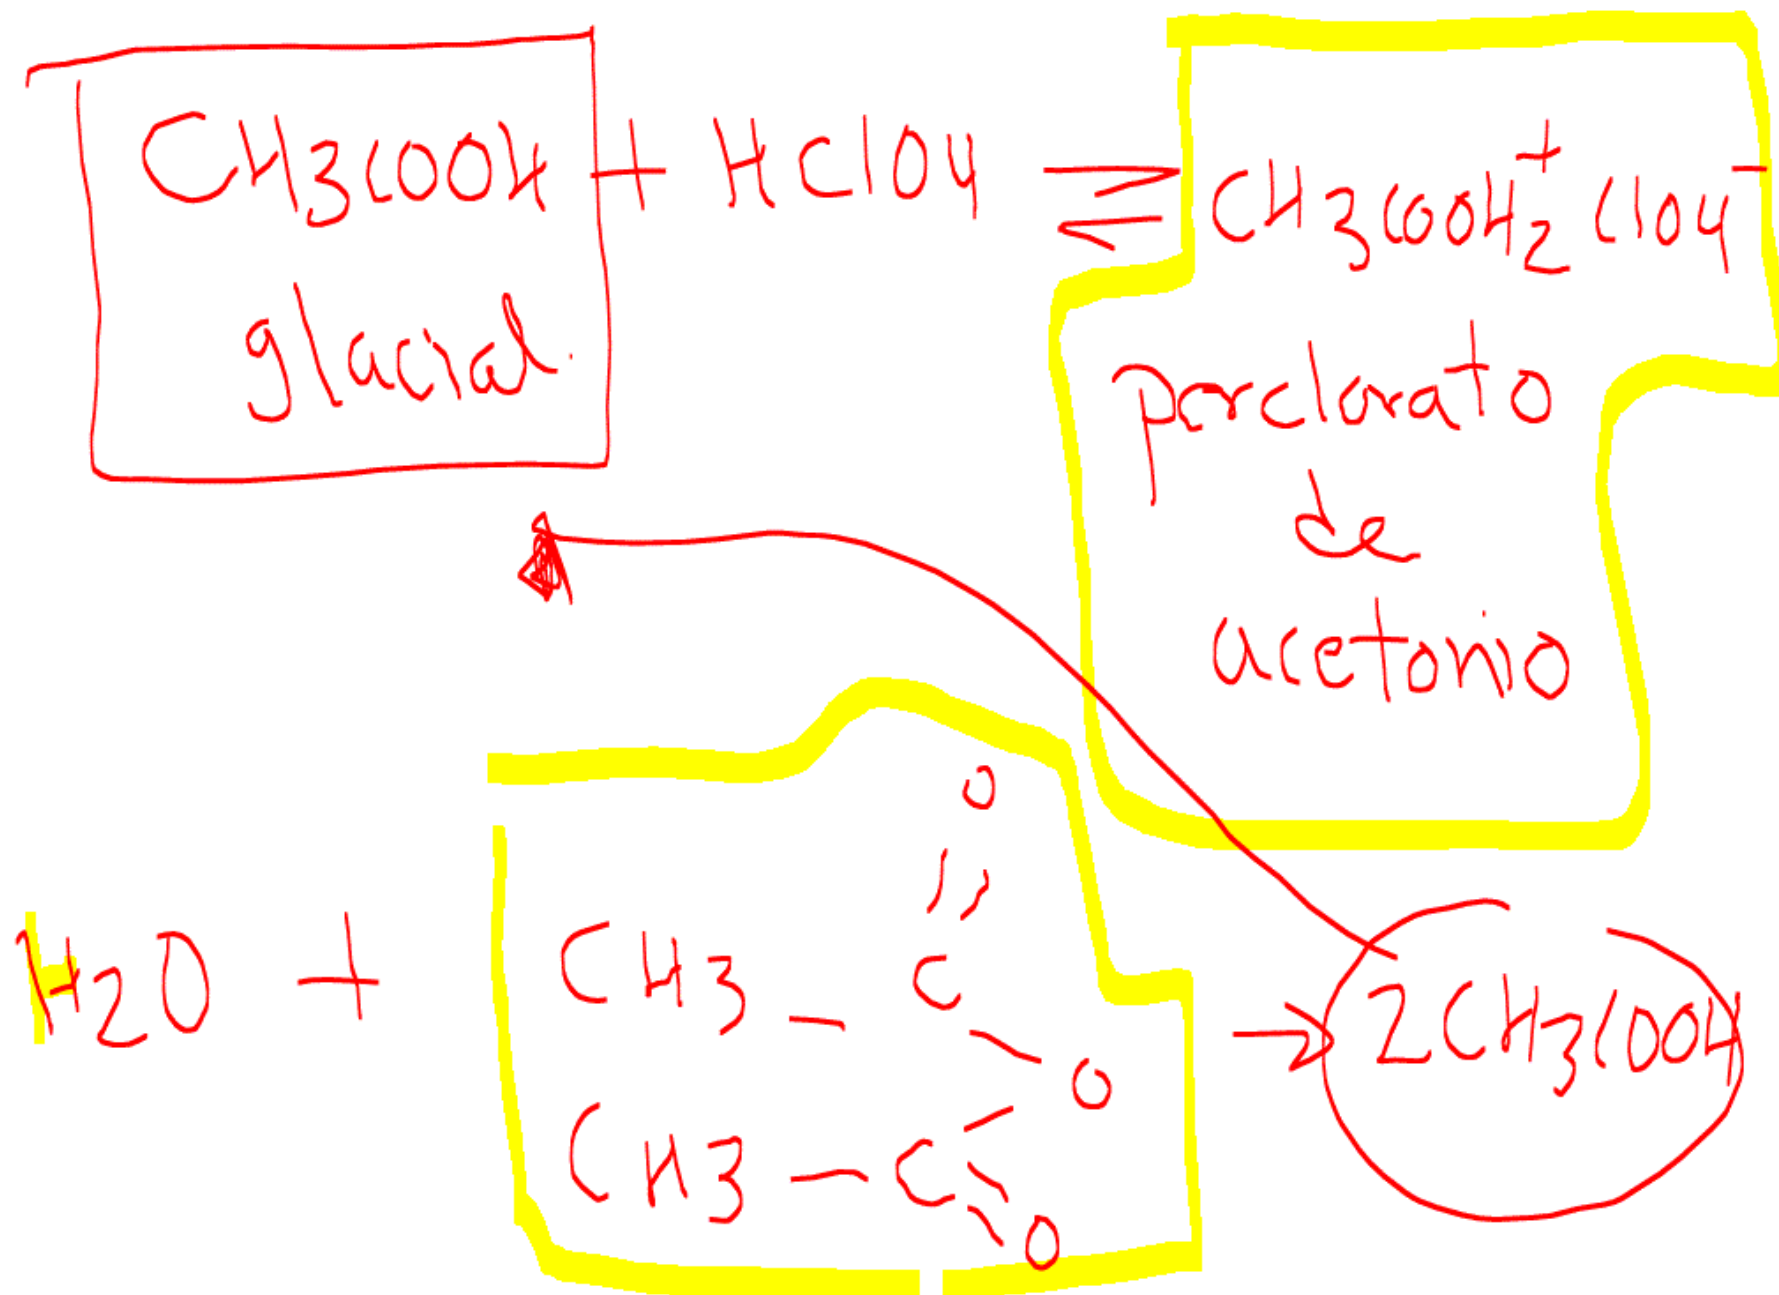 CH3COOH + HClO4 ⇌ CH3COOH2+ ClO4-
glacial.
perclorato
de
acetonio
O
//
H2O + CH3 - C
\
O → 2CH3COOH
/
CH3 - C
\\
O